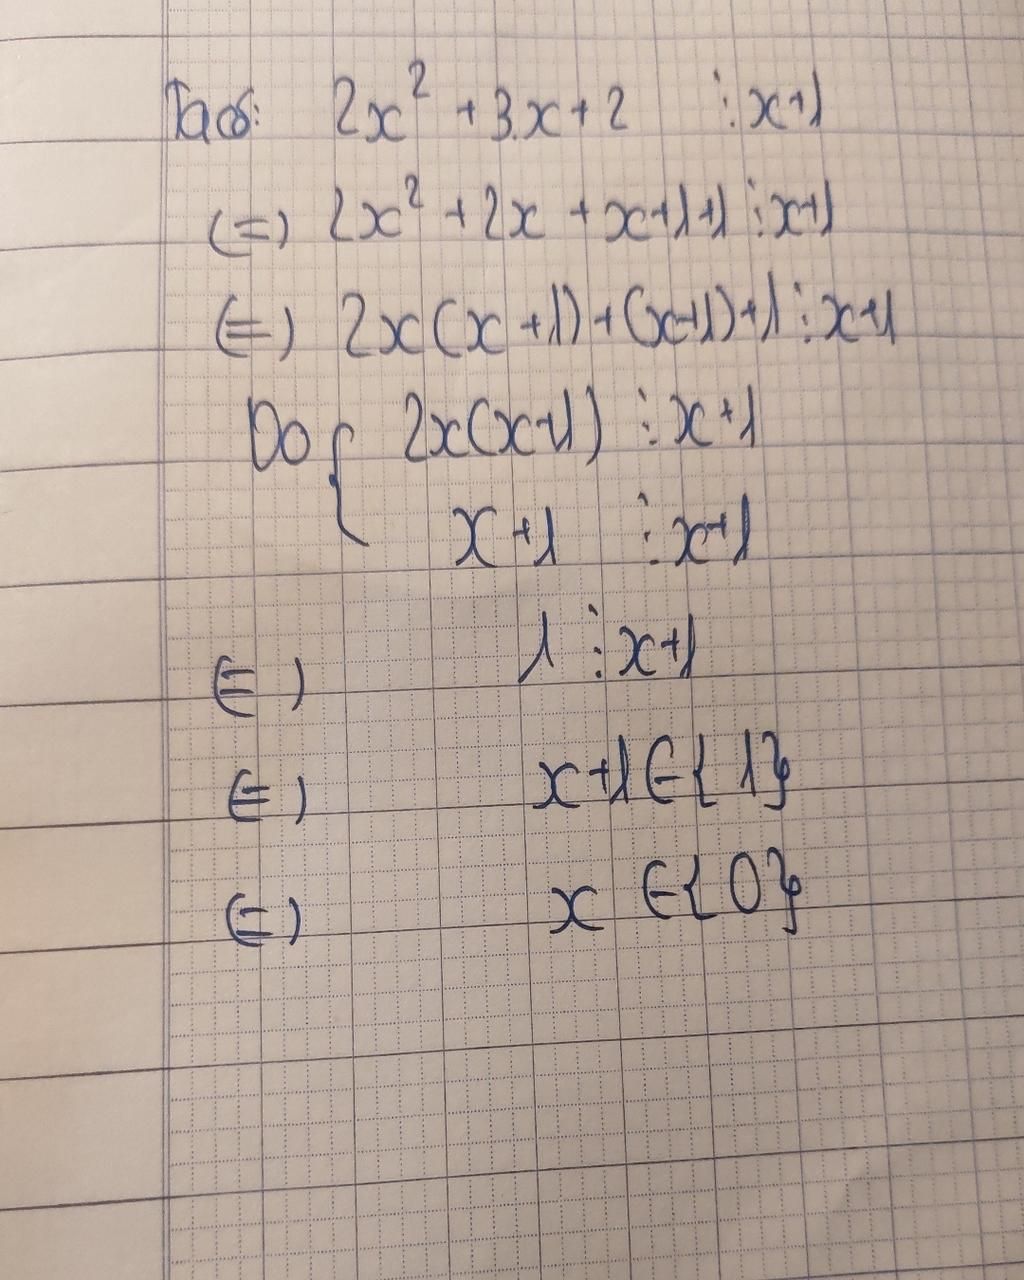 Ta có: 2x² + 3x + 2 ⋮ x+1
(=) 2x² + 2x + x+1+1 ⋮ x+1
(=) 2x(x+1)+(x+1)+1 ⋮ x+1
Do { 2x(x+1) ⋮ x+1
x+1 ⋮ x+1
(=) 1 ⋮ x+1
(=) x+1 ∈ { 1}
(=) x ∈ { 0}